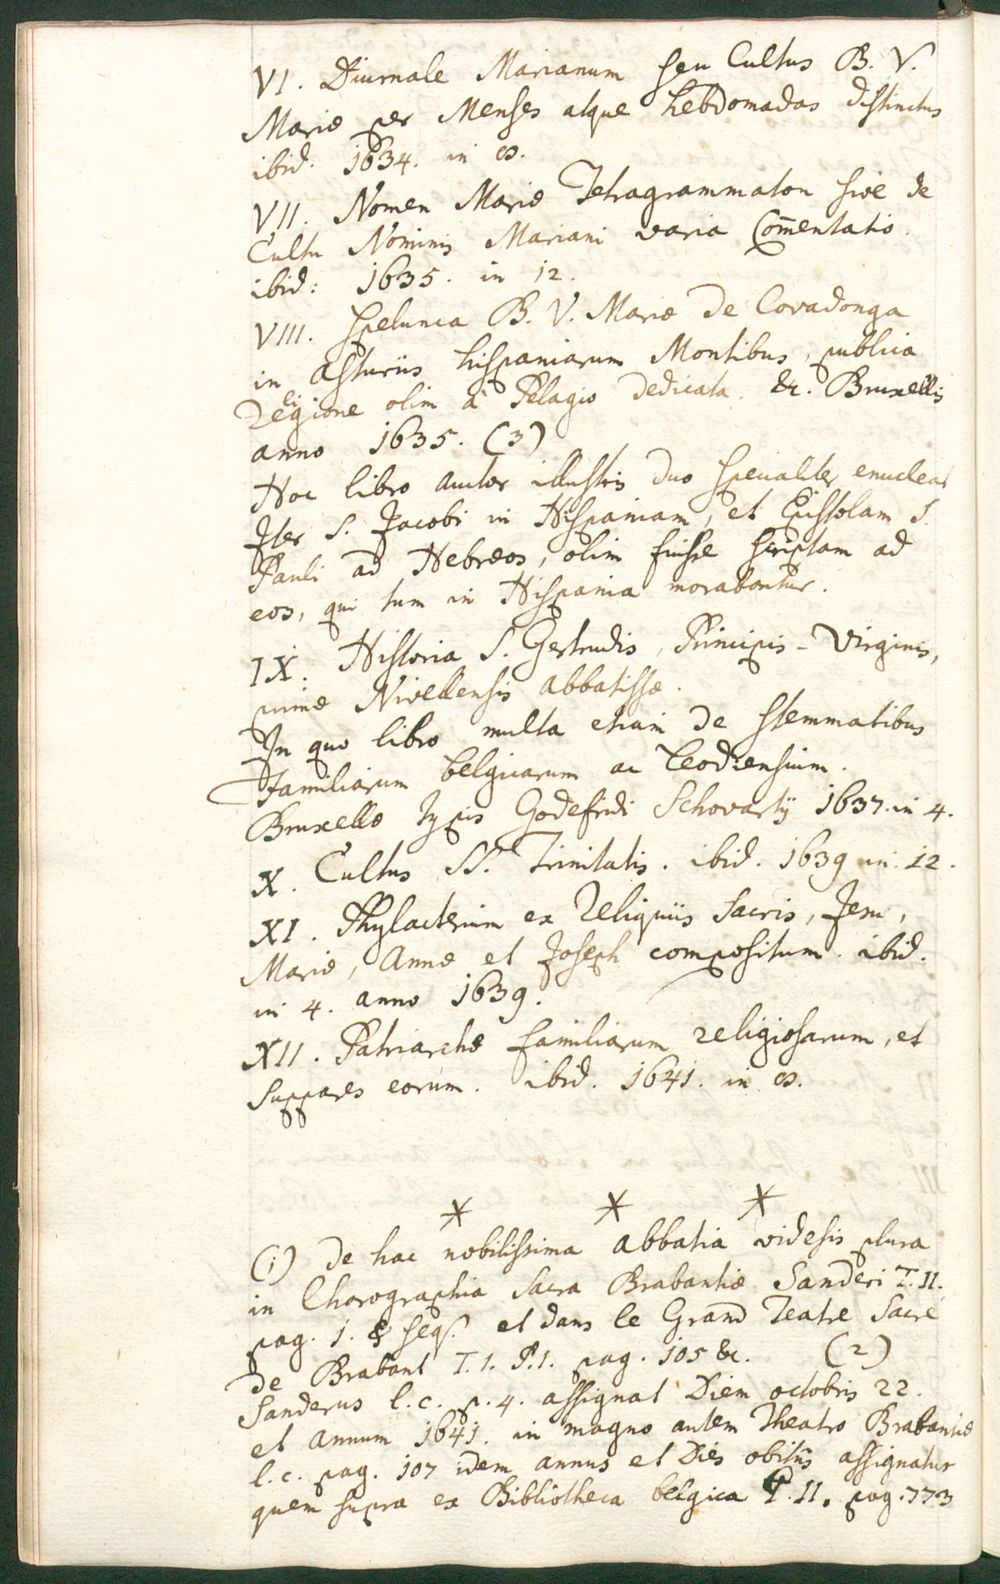 VI. Diurnale Marianum seu Cultus B. V.
Mariæ per Menses atque hebdomadas distinctus
ibid. 1634. in 8.
VII. Nomen Mariæ Tetragrammaton sive de
Cultu Nominis Mariani varia Com̄entatio.
ibid: 1635. in 12.
VIII. Spelunca B. V. Mariæ de Covadonga
in Asturiis hispaniarum Montibus, publica
religione olim à Pelagio dedicata. &c. Bruxellis
anno 1635. (3)
Hoc libro Auctor illustris duo specialiter enucleat
Iter S. Jacobi in Hispaniam, et Epistolam S.
Pauli ad Hebræos, olim fuisse scriptam ad
eos, qui tum in Hispania morabantur.
IX. Historia S. Gertrudis, Principis - Virginis,
primæ Nivellensis abbatissæ.
In quo libro multa etiam de stemmatibus
Familiarum belgicarum ac Leodiensium.
Bruxellæ Typis Godefridi Schovartij 1637. in 4.
X. Cultus SS. Trinitatis. ibid. 1639 in 12.
XI. Phylacterium ex Reliquiis Sacris, Jesu,
Mariæ, Annæ et Joseph compositum. ibid.
in 4. anno 1639.
XII. Patriarchæ familiarum religiosarum, et
suppares eorum. ibid. 1641. in 8.
* * *
(1) De hac nobilissima abbatia videsis plura
in Chorographia sacra Brabantiæ Sanderi T. II.
pag. 1. & seqs. et dans le Grand Teatre Sacré
de Brabant T. 1. P. 1. pag. 105 &c. (2)
Sanderus l. c. p. 4. assignat Diem octobris 22.
et annum 1641. in magno autem Theatro Brabantiæ
l. c. pag. 107 idem annus et Dies obitûs assignatur
quem supra ex Bibliotheca belgica T. II. pag. 773